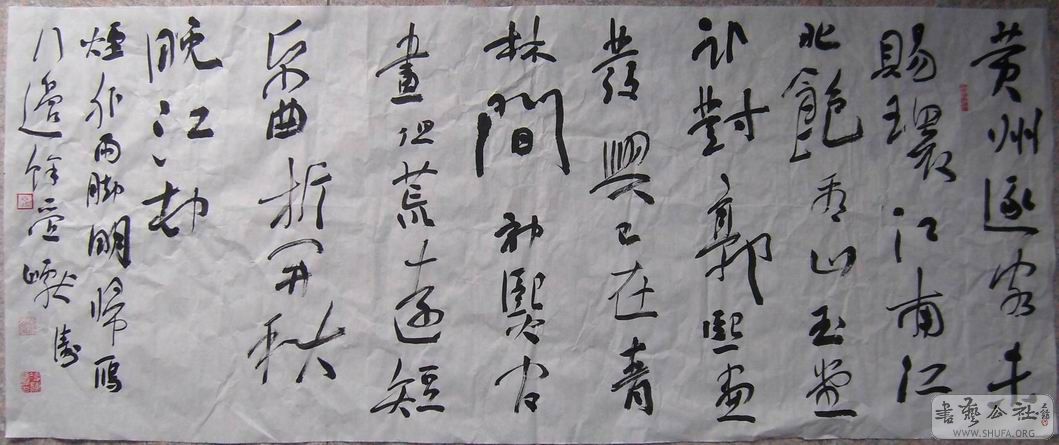 黄州逐客未
賜環江南江
北飽看山玉堂
卧對郭熙畫
發興已在青
林間郭熙官
畫但荒遠短
帋曲折開秋
晚江村
煙外雨脚明歸雁
行邊餘疊巘
書藝公社
WWW.SHUFA.ORG